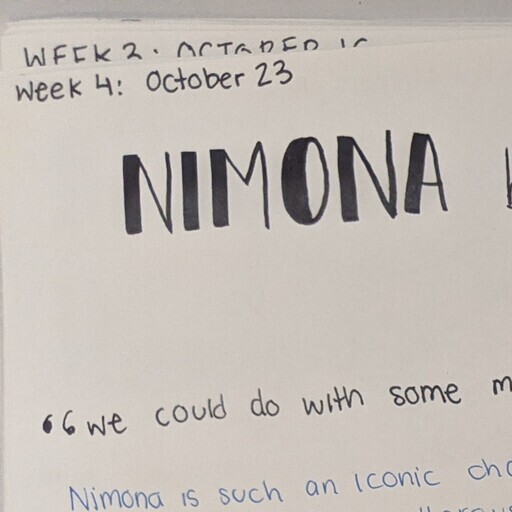 WEEK 3: OCTOBER 16
Week 4: October 23
NIMONA
“we could do with some m
Nimona is such an iconic cha